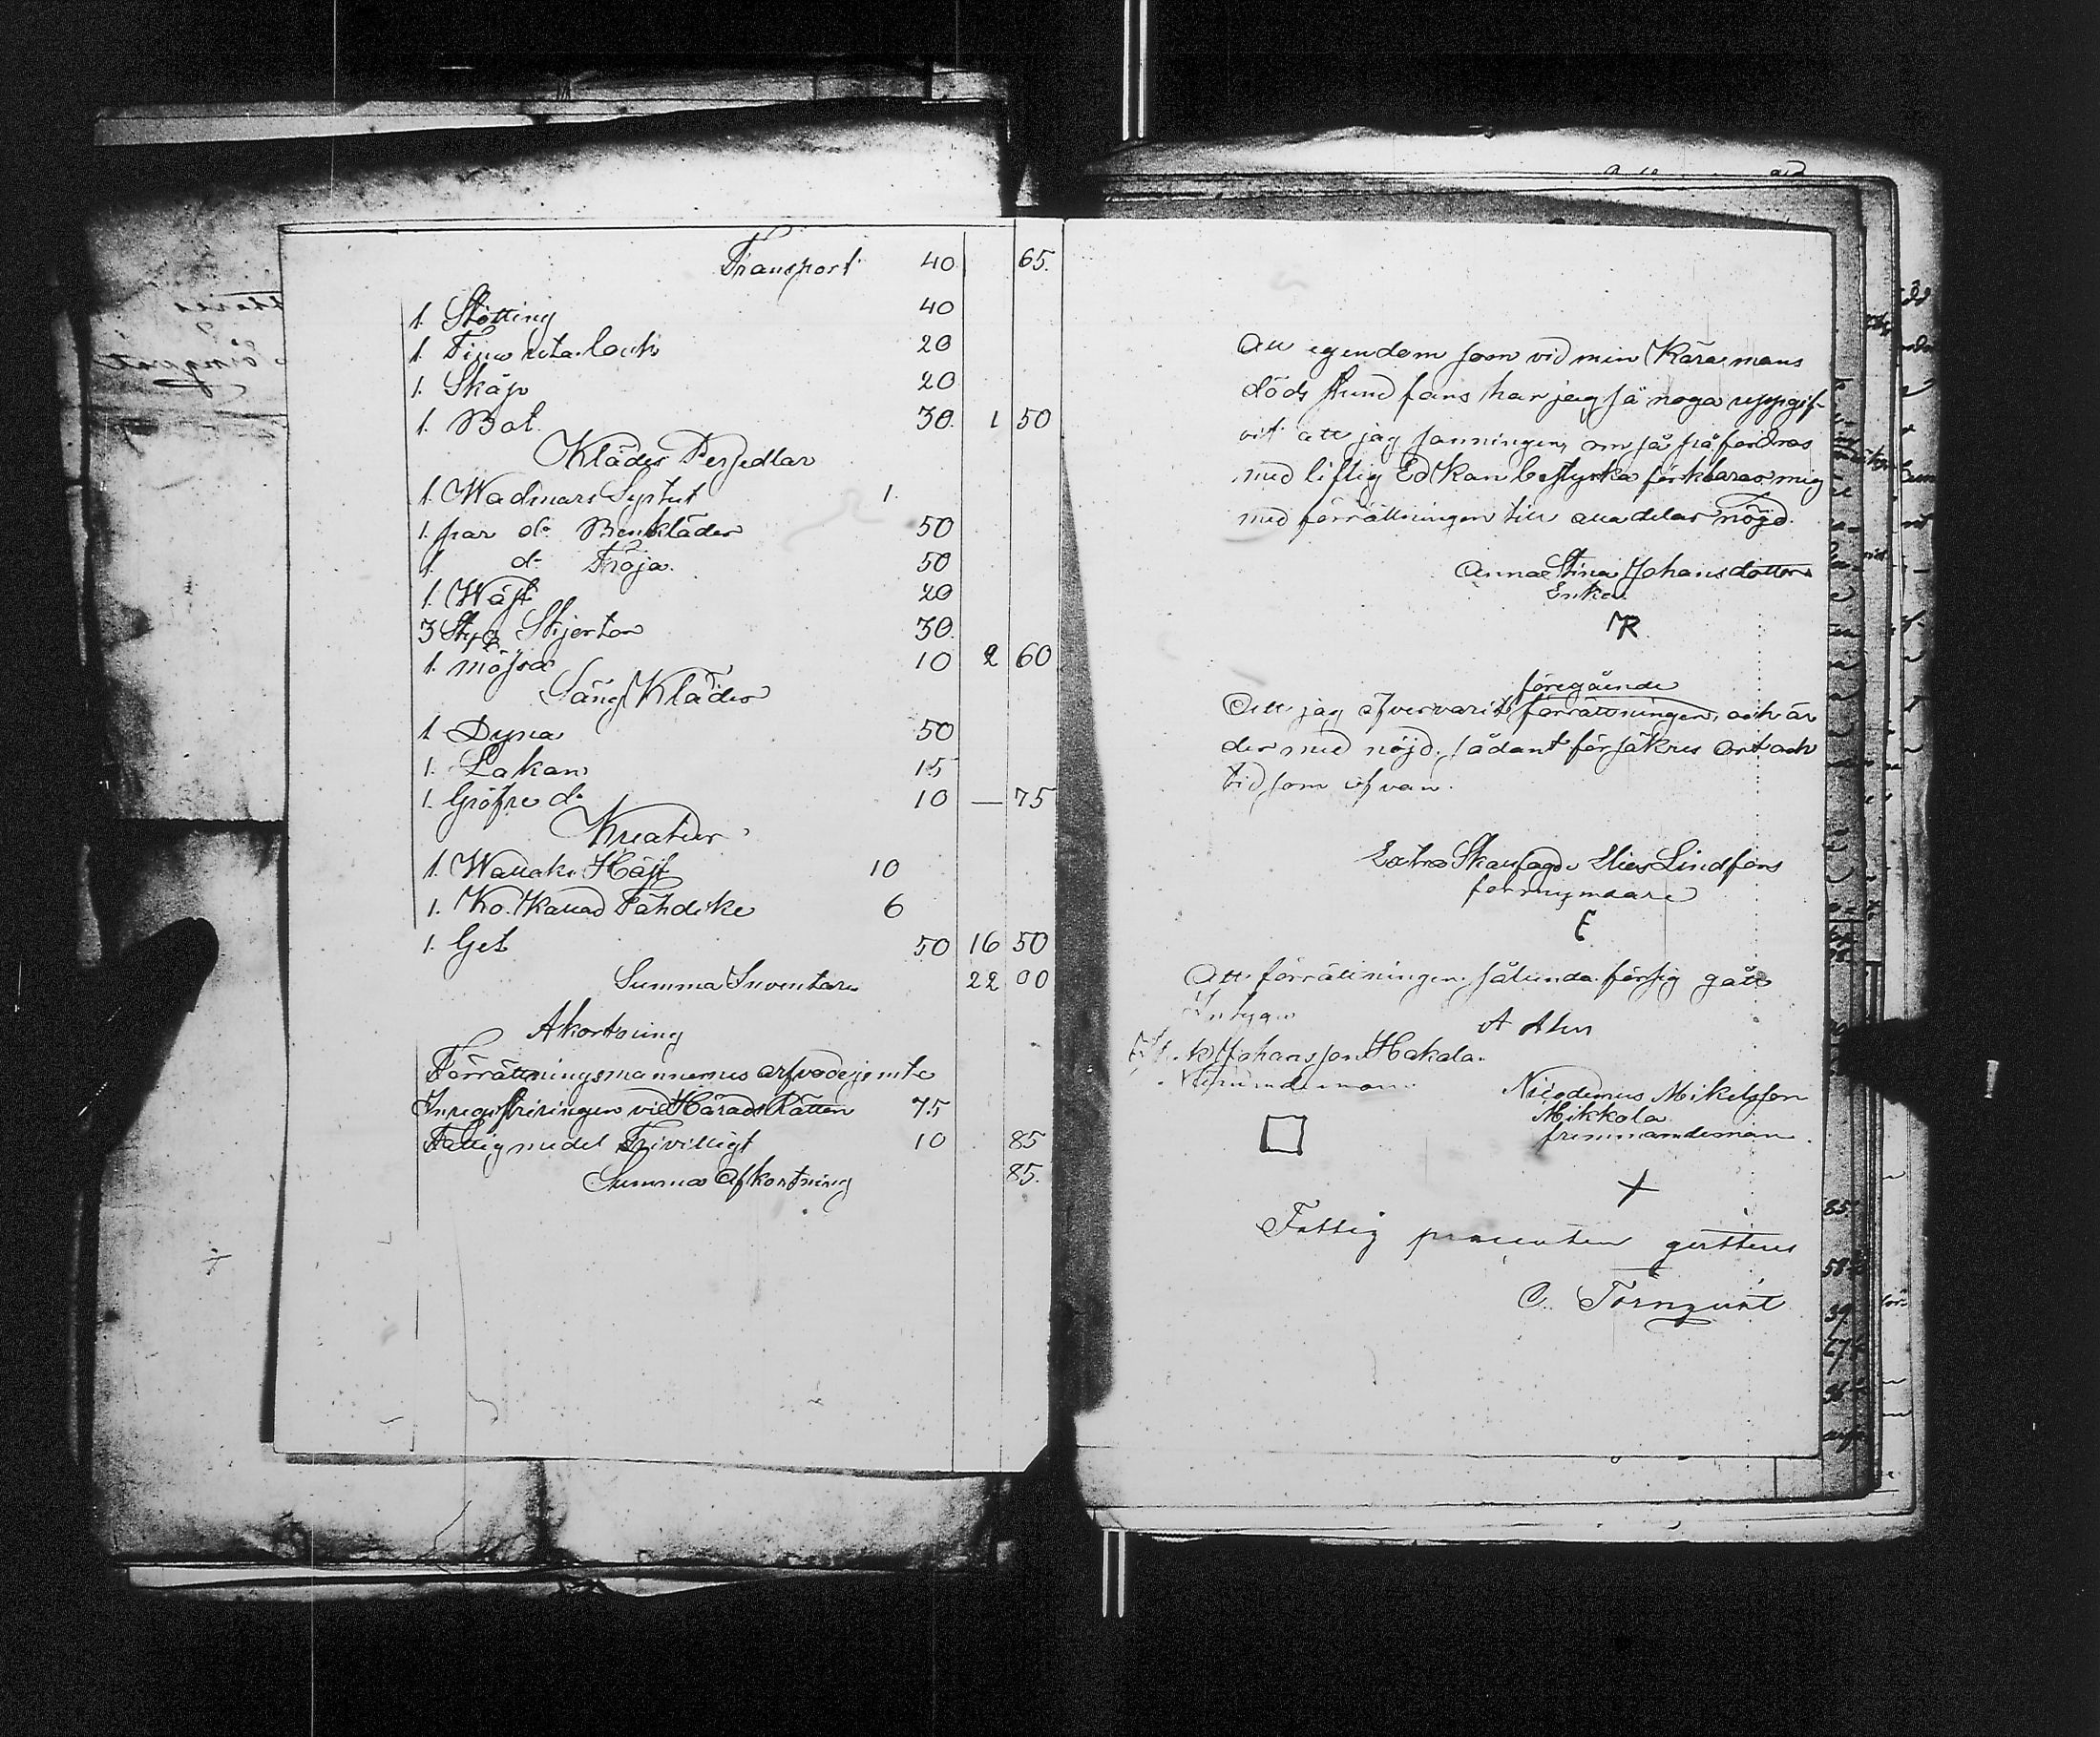 Transport 40 65.
1. Stötting 40
1. 20
1. Skåp 20
1. Bot 30. 1 50
Klädes Persedlar
1. Wadmars Syrtut 1.
1. par do Benkläder 50
1. do Tröja 50
1. Wäst 20
3 Styz Skjortor 30.
1. mössa 10 2 60
Säng Kläder
1. Dyna 50
1. Lakan 15
1. Gröfre do 10 — 75
Kreatur
1. Wallak Häst 10
1. Ko Kallad 6
1. Get 50 16 50
Summa Inventari 22 00
Akortning
Förrättningsmannernes arfvode jemte
Inregistriringen vid Härads Rätten 75
Fattig medel Frivilligt 10 85
Summa Afkortning 85.
All egendom som vid min Kära mans
döds stund fans har jag så noga uppgif-
vit att jag sanningen, om så påfordras
med liflig Ed kan bestyrka förklarar mig
med förrättningen till alla delar nöjd.
Anna Stina Johansdotter
Enka
föregående
Att jag öfvervarit förrättningen, och är
der med nöjd, sådant försäkres ort och
tid som ofvan.
Extra Skallfogde Elias Lindfors
formyndare
Att förrättningen sålunda försig gått
Intygar
Johansson Hakala
Nicodemus Mikelsson
Mikkola
fremmandeman.
Fattig procenten qvitteras
C. Törnqvist